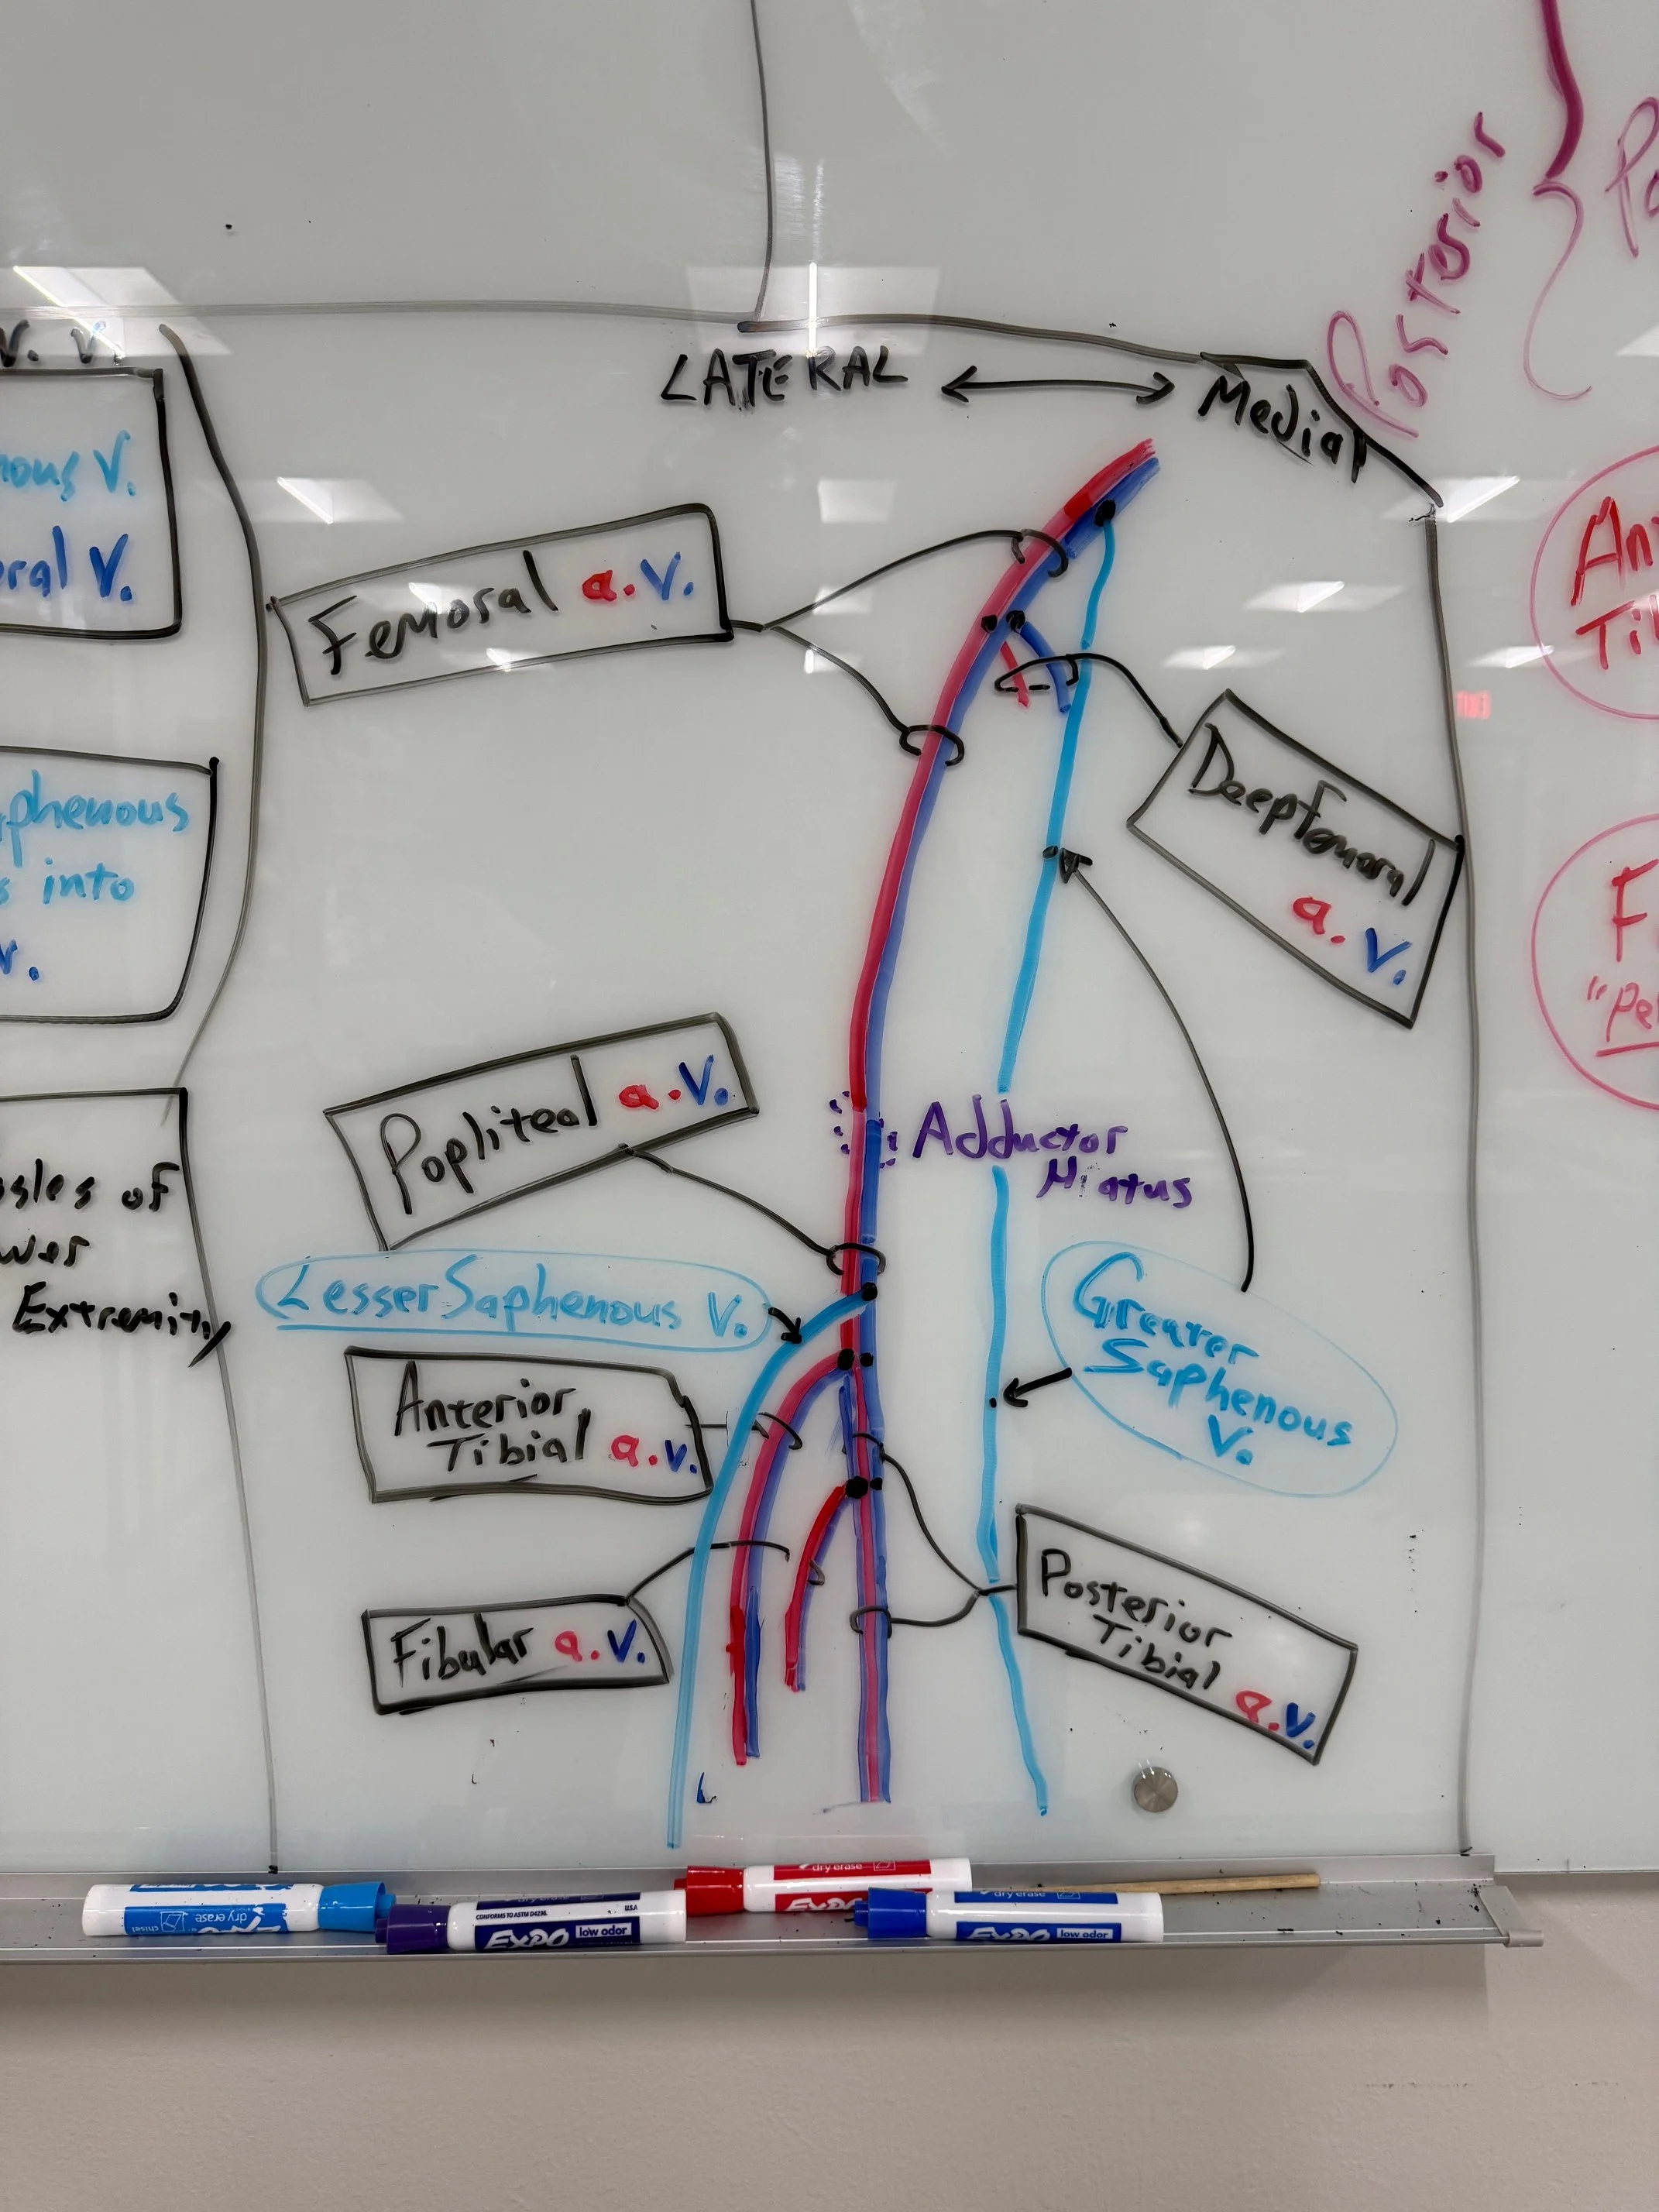 v. v.
nous V.
oral V.
aphenous
s into
v.
sles of
wer
Extremity
LATERAL
Medial
Posterior
Femoral a. v.
Deep Femoral
a. v.
Popliteal a. v.
Adductor
Hiatus
Lesser Saphenous V.
Greater
Saphenous
V.
Anterior
Tibial a. v.
Fibular a. v.
Posterior
Tibial
a. v.
An
Ti
F
"Pe
dry erase
chisel
CONFORMS TO ASTM D4236.
USA
EXPO low odor
dry erase
EXPO
dry erase
EXPO low odor